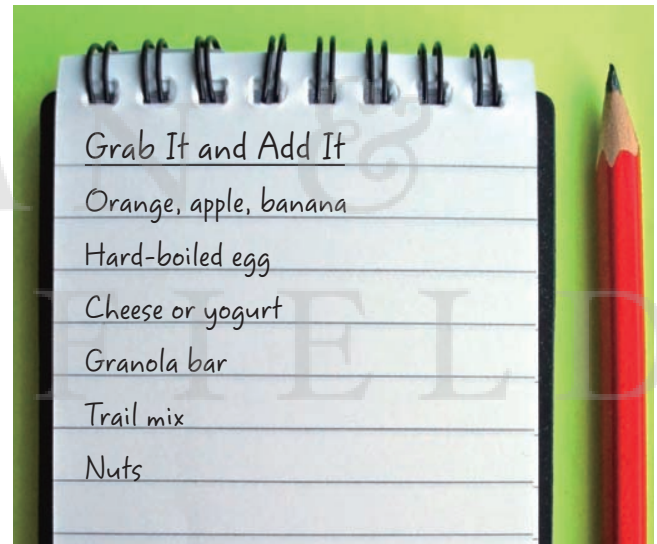 Grab It and Add It
Orange, apple, banana
Hard-boiled egg
Cheese or yogurt
Granola bar
Trail mix
Nuts
AN &
FIELD